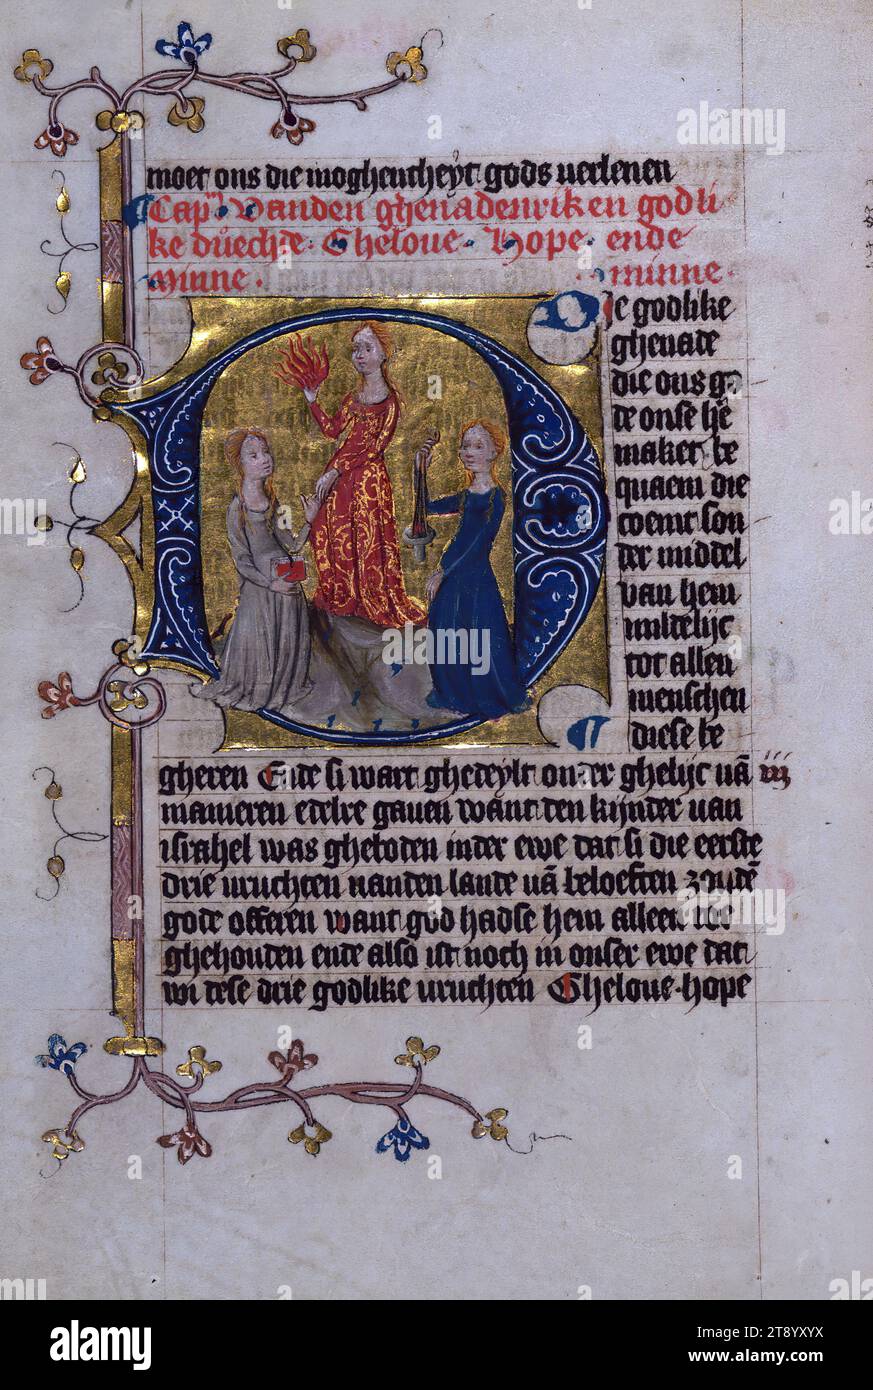 moet ons die moghentheyt gods verlenen
Cap. Vanden ghenadenriken godli
ke duechde. Gheloue. Hope. ende
Minne. minne.
Die godlike
ghenate
die ons go
de onse he
maket be
quaem die
coemt son
der middel
van hem
mildelijc
tot allen
menschen
diese be
gheren Ende si wart ghedeylt onder ghelijc vā iiij
manieren edelre gauen want den kijnder van
israhel was gheboden inder ewe dat si die eerste
drie vruchten nanden lande vā beloeften zoudē
gode offeren want god hadse hem alleen toe
ghehouden ende also ist noch in onser ewe dat
wi dese drie godlike vruchten Gheloue. hope
alamy
Image ID: 2T8YXYX
www.alamy.com